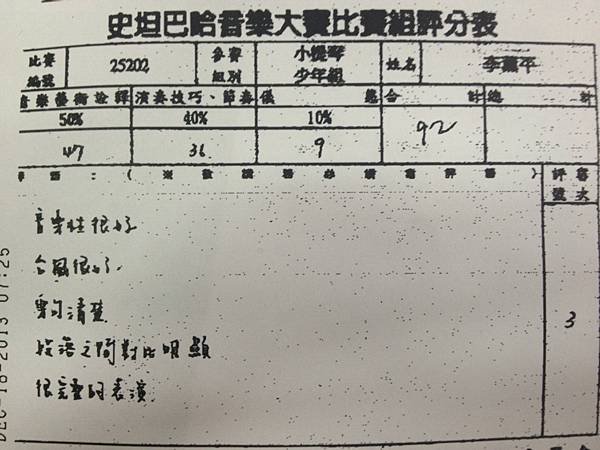 史坦巴哈音樂大賽比賽組評分表
比賽編號 25202 參賽組別 小提琴少年組 姓名 李蕙平
音樂藝術詮釋 演奏技巧、節奏 儀態 合計 總計
50% 40% 10% 92
47 36 9
評審
音樂性很好
台風很好.
樂句清楚
3
段落之間對比明顯
很完整的表演
DEC-18-2013 07:25